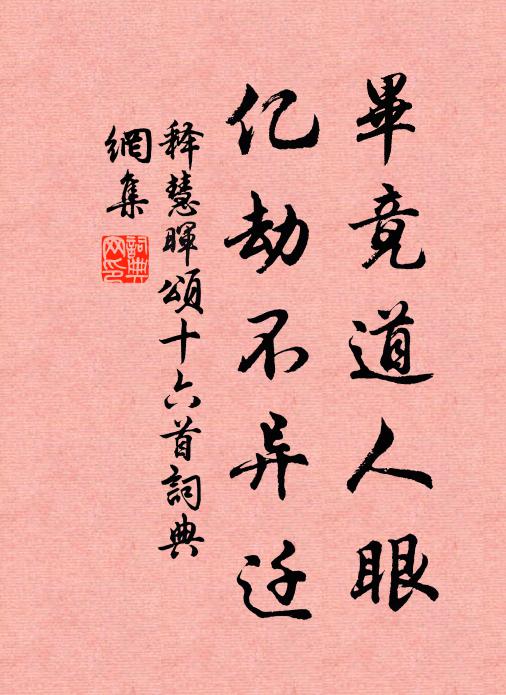 畢竟道人眼
亿劫不异迁
释慧暉頌十六首詞典
網集
詞典
网印